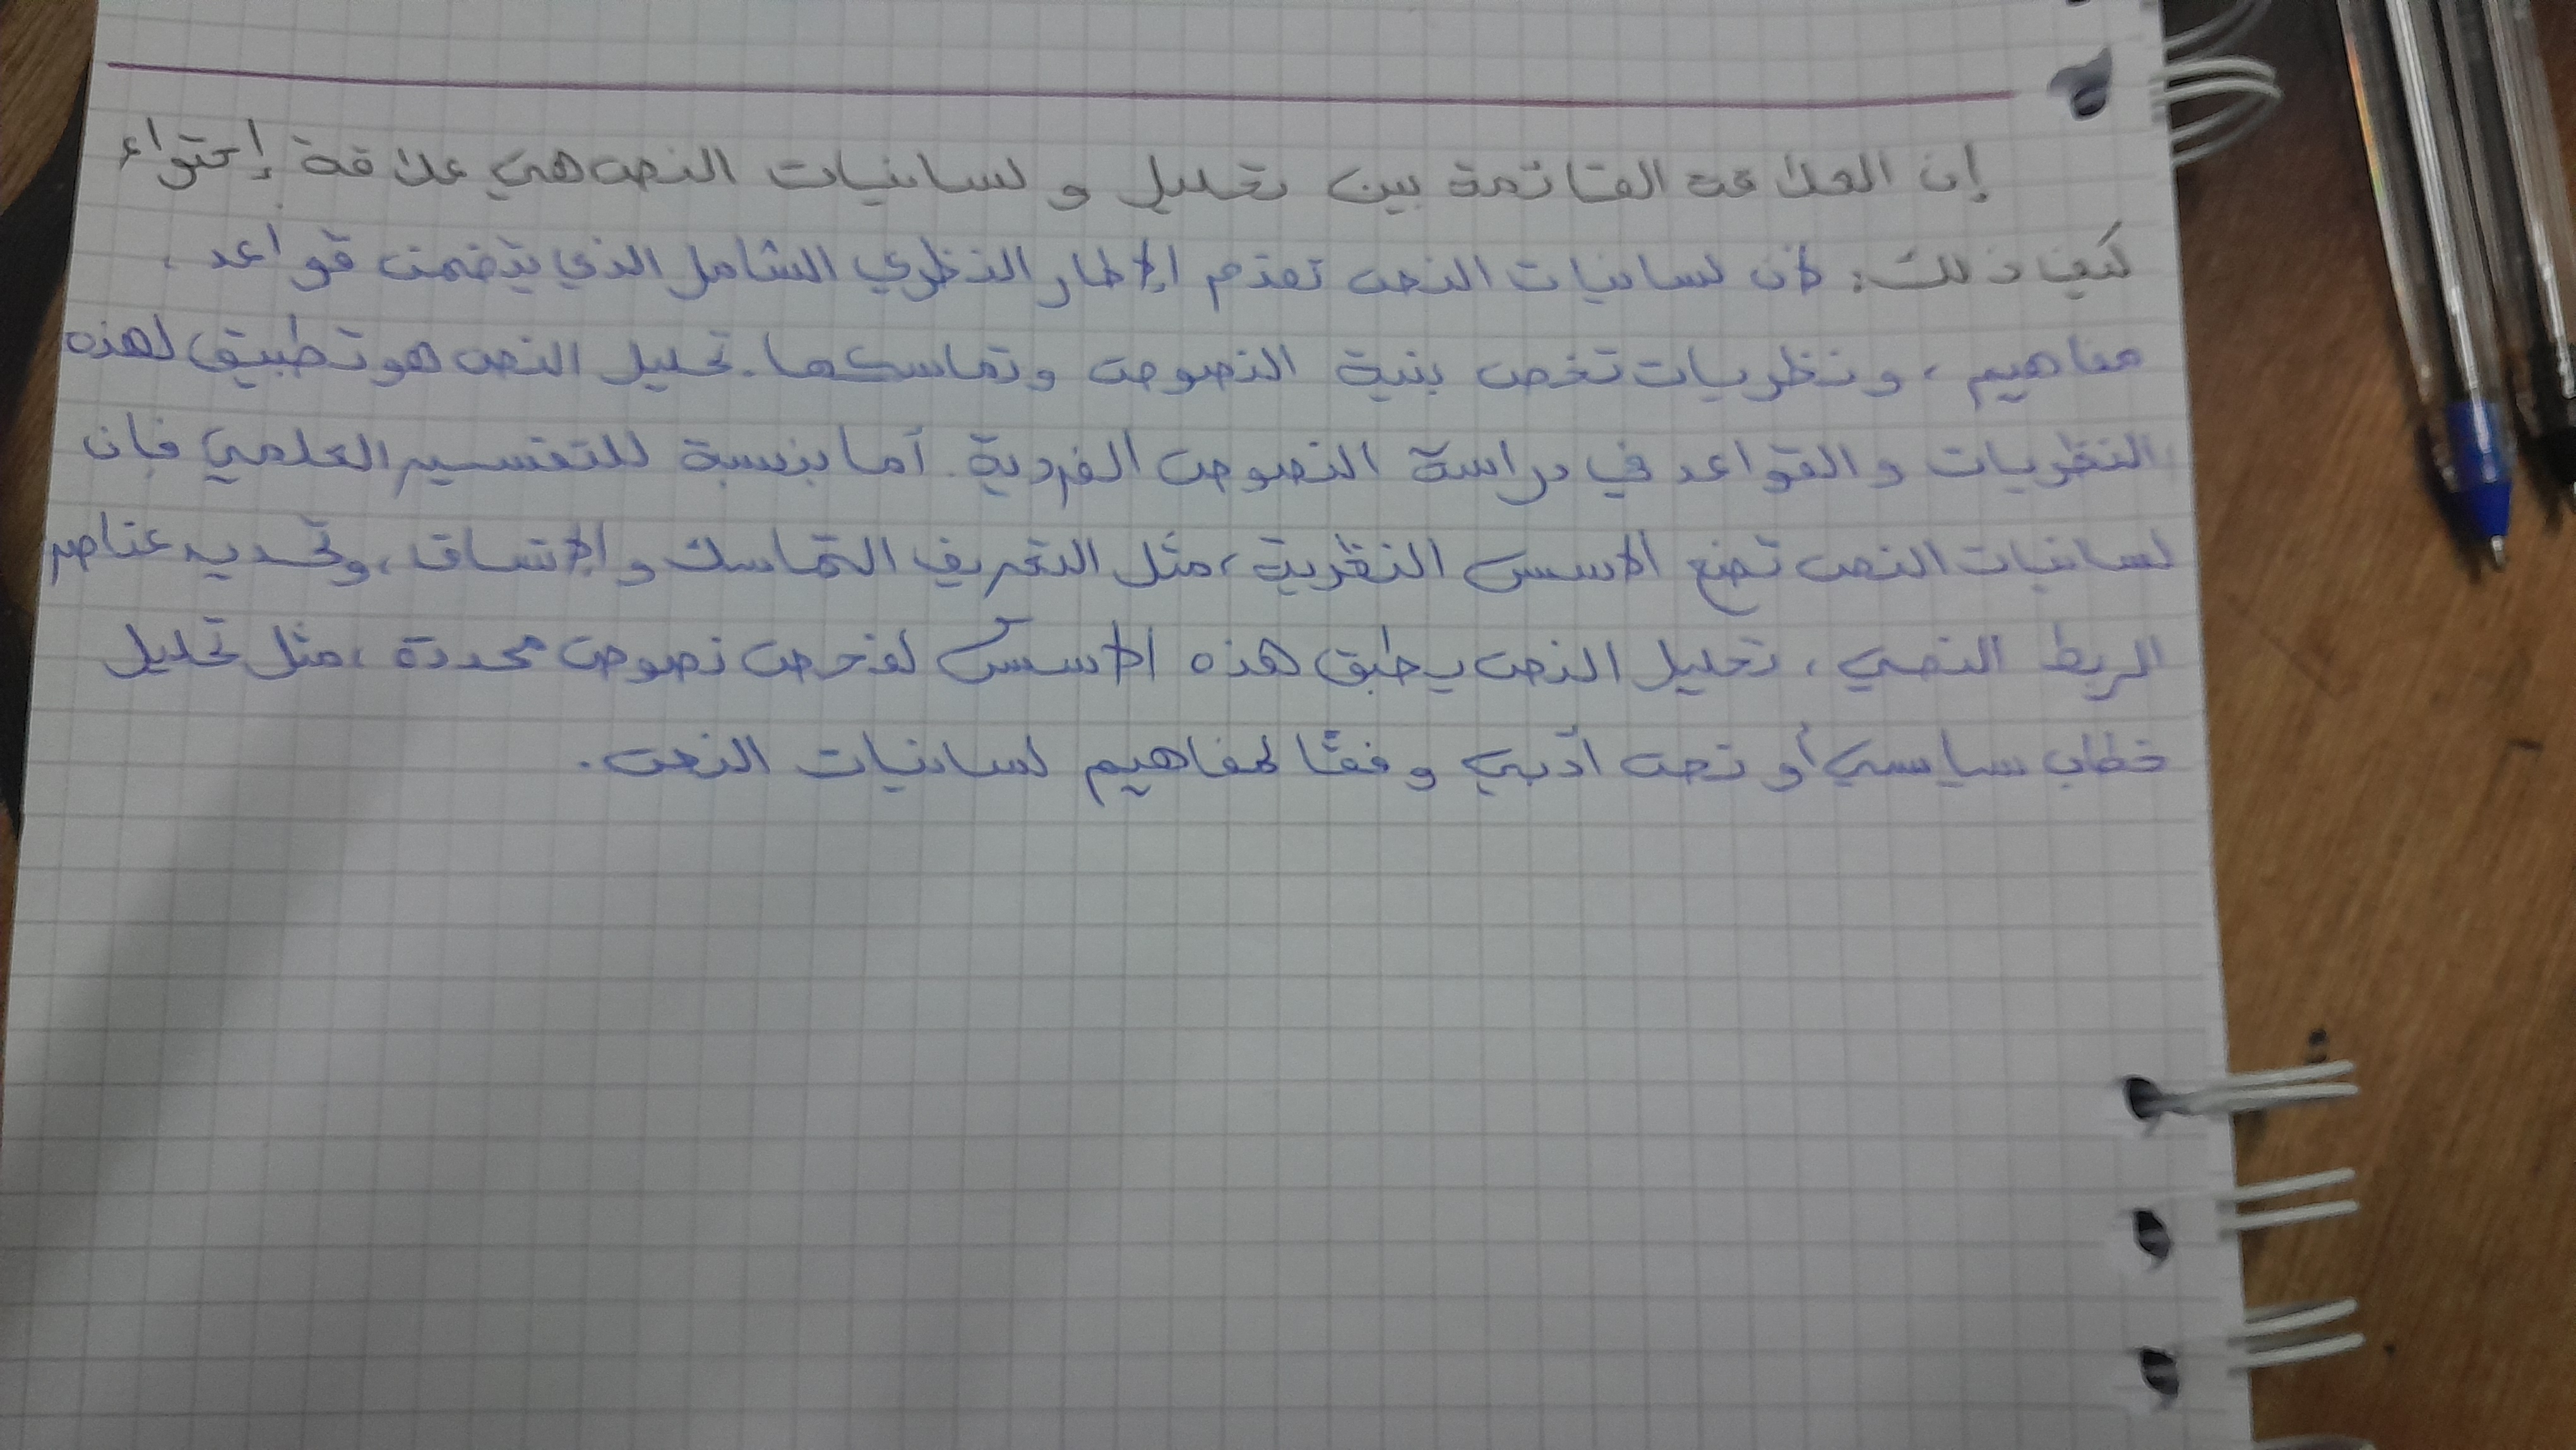 إن العلاقة القائمة بين تحليل و لسانيات النص هي علاقة إحتواء
كيف ذلك: لأن لسانيات النص تقدم الإطار النظري الشامل الذي يتضمن قواعد،
مفاهيم، و نظريات تخص بنية النصوص وتماسكها. تحليل النص هو تطبيق لهذه
النظريات والقواعد في دراسة النصوص الفردية. أما بنسبة للتفسير العلمي فإن
لسانيات النص تضع الاسس النظرية، مثل التعريف التماسك والإتساق، وتحديد عناصر
الربط النصي، تحليل النص يطبق هذه الاسس لفحص نصوص محددة، مثل تحليل
خطاب سياسي أو نص أدبي وفقًا لمفاهيم لسانيات النص.